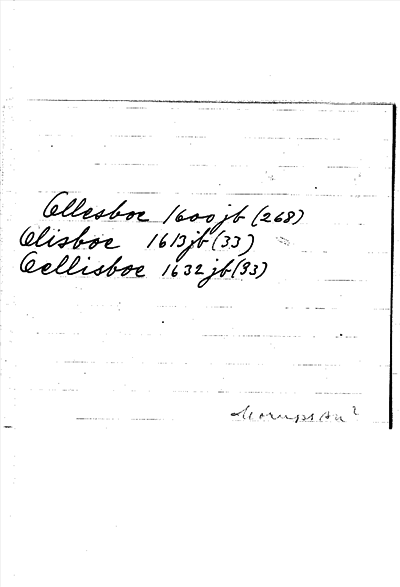 Ellesboe 1600 jb (268)
Elisboe 1613 jb (33)
Eellisboe 1632 jb (93)